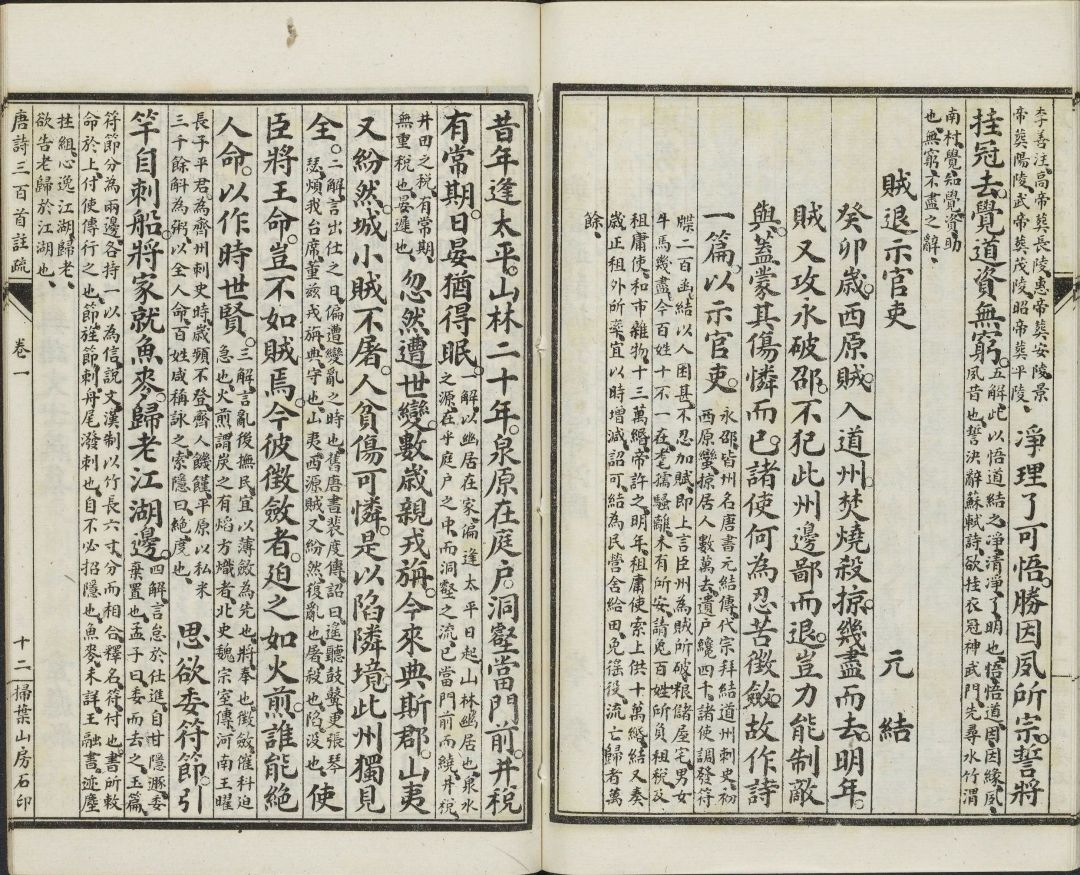 李善注、高帝葬長陵、惠帝葬安陵、景
帝葬陽陵、武帝葬茂陵、昭帝葬平陵、
淨理了可悟。勝因夙所宗。誓將
挂冠去。覺道資無窮。
五解、此以悟道結之、淨、清淨、了、明也、悟、悟道、因、因緣、夙、
夙昔也、誓、決辭、蘇軾詩、欲挂衣冠神武門、先尋水竹渭
南村、覺、知覺、資、助
也、無窮、不盡之辭、
賊退示官吏
元結
癸卯歲。西原賊入道州。焚燒殺掠。幾盡而去。明年。
賊又攻永破邵。不犯此州邊鄙而退。豈力能制敵
與。蓋蒙其傷憐而已。諸使何為忍苦徵斂。故作詩
一篇。以示官吏。
永邵、皆州名、唐書元結傳、代宗拜結道州刺史、初
西原蠻、掠居人數萬去、遺戶纔四千、諸使調發符
牒二百函、結以人困甚、不忍加賦、即上言臣州為賊所破、糧儲屋宅男女
牛馬幾盡、今百姓十不一在、耄孺騷離、未有所安、請免百姓所負租稅及
租庸使、和市雜物、十三萬緡、帝許之、明年、租庸使索上供十萬緡、結又奏
歲正租外、所率宜以時增減、詔可、結為民營舍給田、免徭役、流亡歸者萬
餘、
昔年逢太平。山林二十年。泉源在庭戶。洞壑當門前。井稅
有常期。日晏猶得眠。
一解、以幽居在家、偏逢太平日起、山林幽居也、泉水
之源、在乎庭戶之中、而洞壑之流、已當門前而繞、井稅、
井田之稅、有常期、
無重稅也、晏遲也、
忽然遭世變。數歲親戎旃。今來典斯郡。山夷
又紛然。城小賊不屠。人貧傷可憐。是以陷隣境。此州獨見
全。
二解、言出仕之日、偏遭變亂之時也、舊唐書裴度傳、詔曰、遙聽鼓鼙、更張琴
瑟、煩我台席、董茲戎旃、典守也、山夷西源賊、又紛然、復亂也、屠殺也、陷沒也、
使
臣將王命。豈不如賊焉。今彼徵斂者。迫之如火煎。誰能絕
人命。以作時世賢。
三解、言亂後撫民、宜以薄斂為先也、將、奉也、徵斂、催科、迫
急也、火煎、謂炭之有焰方熾者、北史魏宗室傳、河南王曜
長子平、君為齊州刺史、時歲頻不登、齊人饑饉、平原以私米
三千餘斛為粥、以全人命、百姓咸稱詠之、索隱曰、絕、度也、
思欲委符節。引
竿自刺船。將家就魚麥。歸老江湖邊。
四解、言怠於仕進、自甘隱遯、委
棄置也、孟子曰、委而去之、玉篇、
符節分為兩邊、各持一以為信、說文、漢制以竹、長六寸、分而相合、釋名、符、付也、書所敕
命於上、付使傳行之也、節旌節、刺、舟尾潑刺也、自不必招隱也、魚麥、未詳、王融書、迹塵
挂組、心逸江湖、歸老、
欲告老歸於江湖也、
唐詩三百首註疏
卷一
十二
掃葉山房石印